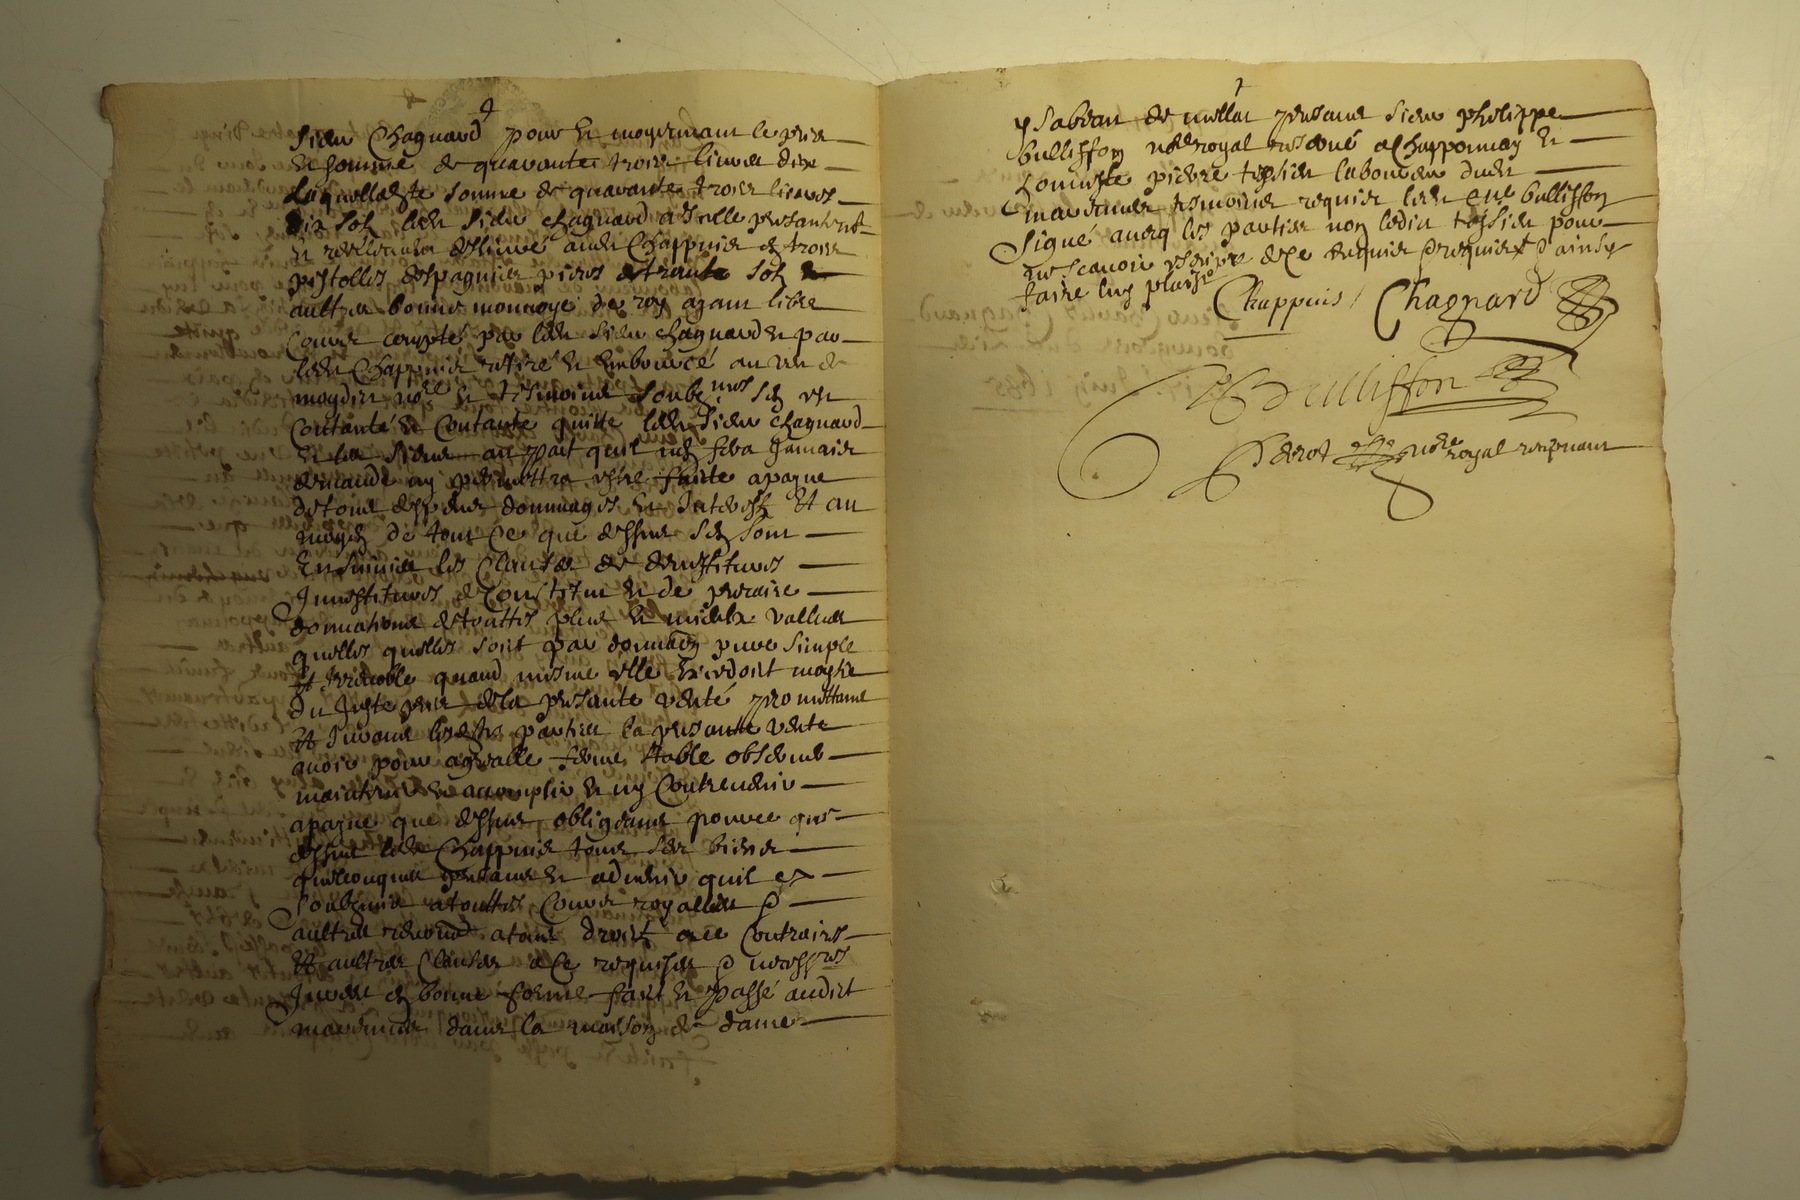 Sieur Chagnard pour et moyennant le prix
et somme de quarante trois livres dix
laquelle somme de quarante trois livres
dix solz led. Sieur Chagnard a
et deslivré aud. Chappuis en trois
pistolles despagnier pieces de trente solz et
aultre bonne monnoye de roy ayant libre
cours compté par led. Sieur Chagnard et par
led. Chappuis retiré et embourcé au veu de
moydict no.re et tesmoins soubz.nes sen est
contanté et contante quitte led. Sieur Chagnard
et les siens au pact quil nen fera jamais
demande ny permettra estre faicte a payne
de tous despens dommages et interestz Et au
moyen de tout ce que dessus sen sont
ensuivies les clauses de devestitures
Investitures de constitut et de precaire
donnations de touttes plus et mieulx vallues
quelles quelles soit par donna.on pure simple
Et irrevocable quand mesme elle excedoit moytie
du juste prix de la presante vente promettans
Et jurans lesd. parties la presante vente
avoir pour agreable ferme stable observer
maintenir et accomplir et ny contrevenir
a payne que dessus obligeans pour ce que
dessus led. Chappuis tous ses biens
quelconques presans et advenir quil a
soubzmis a touttes cours royalles &
aultres renoncé a tous droictz a ce contraires
Et aultres clauses a ce requises & necess.res
en bonne forme faict et passé audict
dans la maison de dame
Ysabeau de presans Sieur philippe
Bullisson no.re royal reservé a Chapponnay et
pierre laboureur dud.
tesmoins requis led. Bullisson
Signé avecq les parties non ledict pour
ne scavoir escripre de ce enquis & requis dainsy
faire leur plaise
Chappuis / Chagnard
Bullisson
Perrot no.re royal